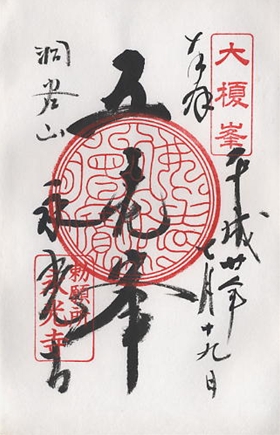 大榎峯
奉拝
平成廿年七月十九日
五老峯
洞谷山
永光寺
勅願所
永光寺